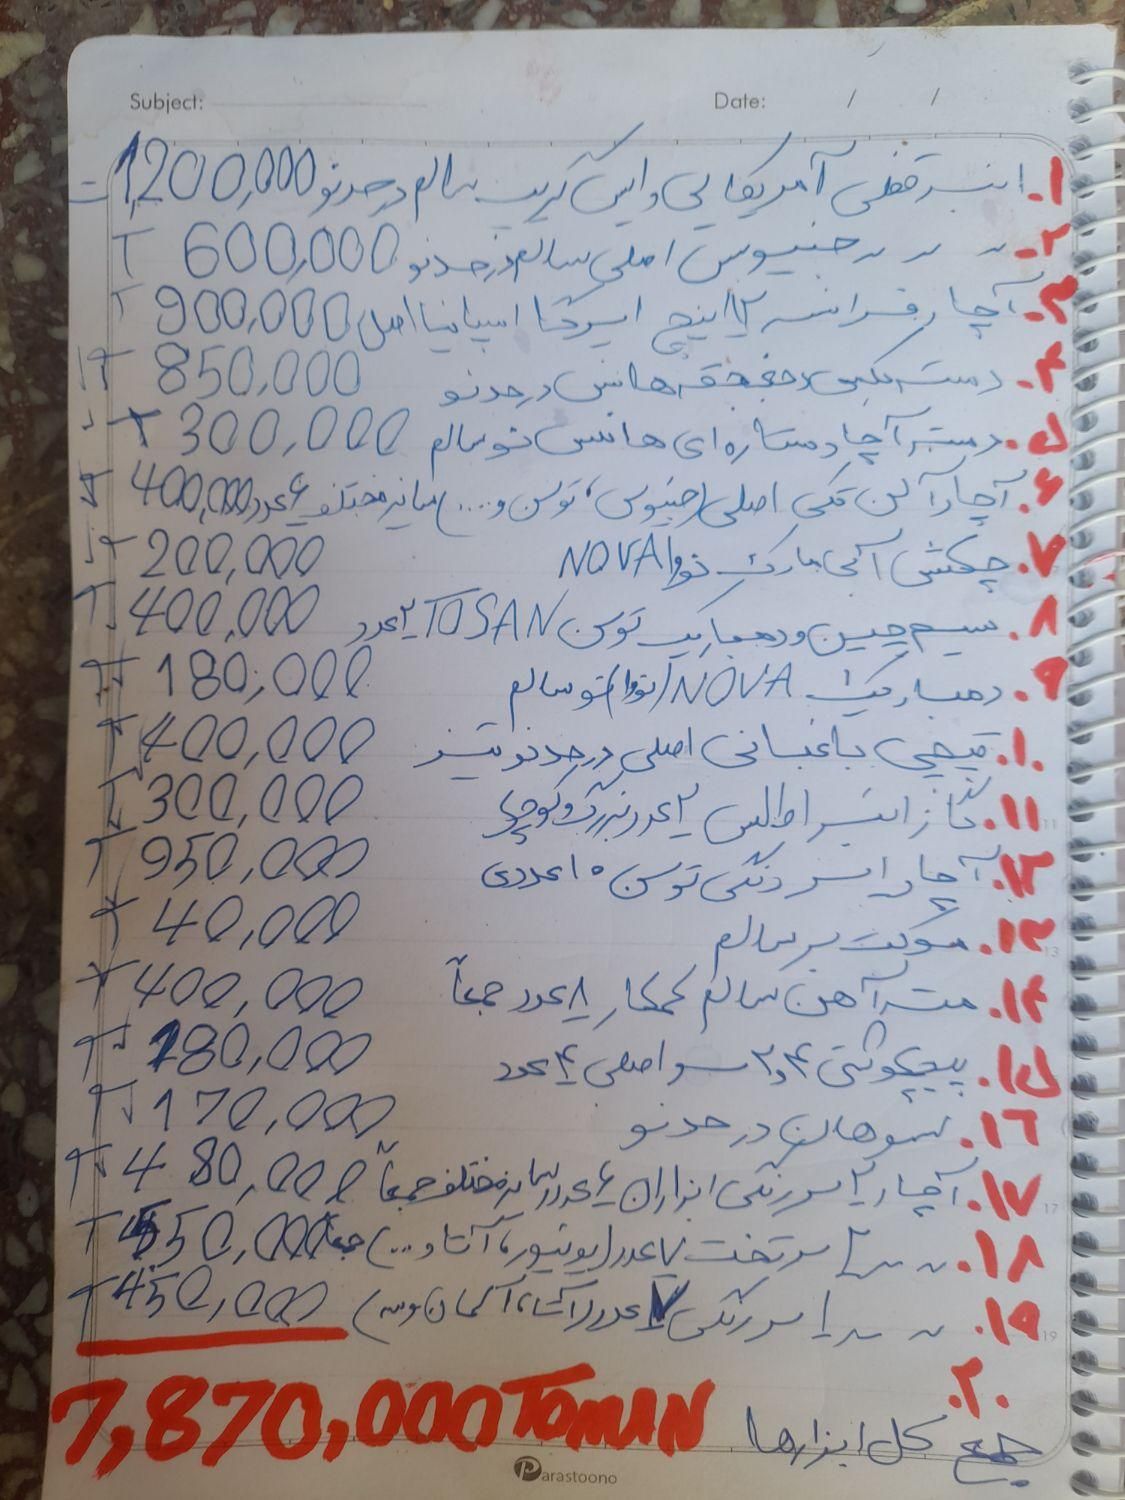 Subject: Date: / /
۱. انبر قفلی آمریکایی وایس گریپ سالم در حد نو 1,200,000 =
۲. 〃 〃 〃 جنیوس اصلی سالم در حد نو 600,000 T
۳. آچار فرانسه ۱۲ اینچ ایرگا اسپانیا اصل 900,000 T
۴. دسته بکس جغجغه هانس در حد نو 850,000 T
۵. دسته آچار ستاره ای هانس نو سالم 300,000 T
۶. آچار آلن تکی اصلی (جنیوس، توسن و ....) سایز مختلف ۶ عدد 400,000 T
۷. چکش آبی مارک نووا NOVA 200,000 T
۸. سیم چین و دمباریک توسن TOSAN ۲ عدد 400,000 T
۹. دمباریک ۱ NOVA (نووا) نو سالم 180,000 T
۱۰. قیچی باغبانی اصلی در حد نو تیز 400,000 T
۱۱. گاز انبر اطلس ۲ عدد بزرگ و کوچک 300,000 T
۱۲. آچار یکسر رنگی توسن ۱۰ عددی 950,000 T
۱۳. موکت بر سالم 40,000 T
۱۴. مته آهن سالم کمکار ۸ عدد جمعاً 400,000 T
۱۵. پیچگوشتی ۴ و ۲ سو اصلی ۴ عدد 180,000 T
۱۶. سوهان در حد نو 170,000 T
۱۷. آچار ۲ سر رینگی ابزاران ۶ عدد سایز مختلف جمعاً 480,000 T
۱۸. 〃 〃 ۲ سر تخت ۷ عدد (یونیور، آتا و ...) جمعاً 550,000 T
۱۹. 〃 〃 ۱ سر رنگی ۷ عدد (آتا، آلمان و ...) 450,000 T
۲۰. جمع کل ابزارها 7,870,000 TOMAN
Parastoono